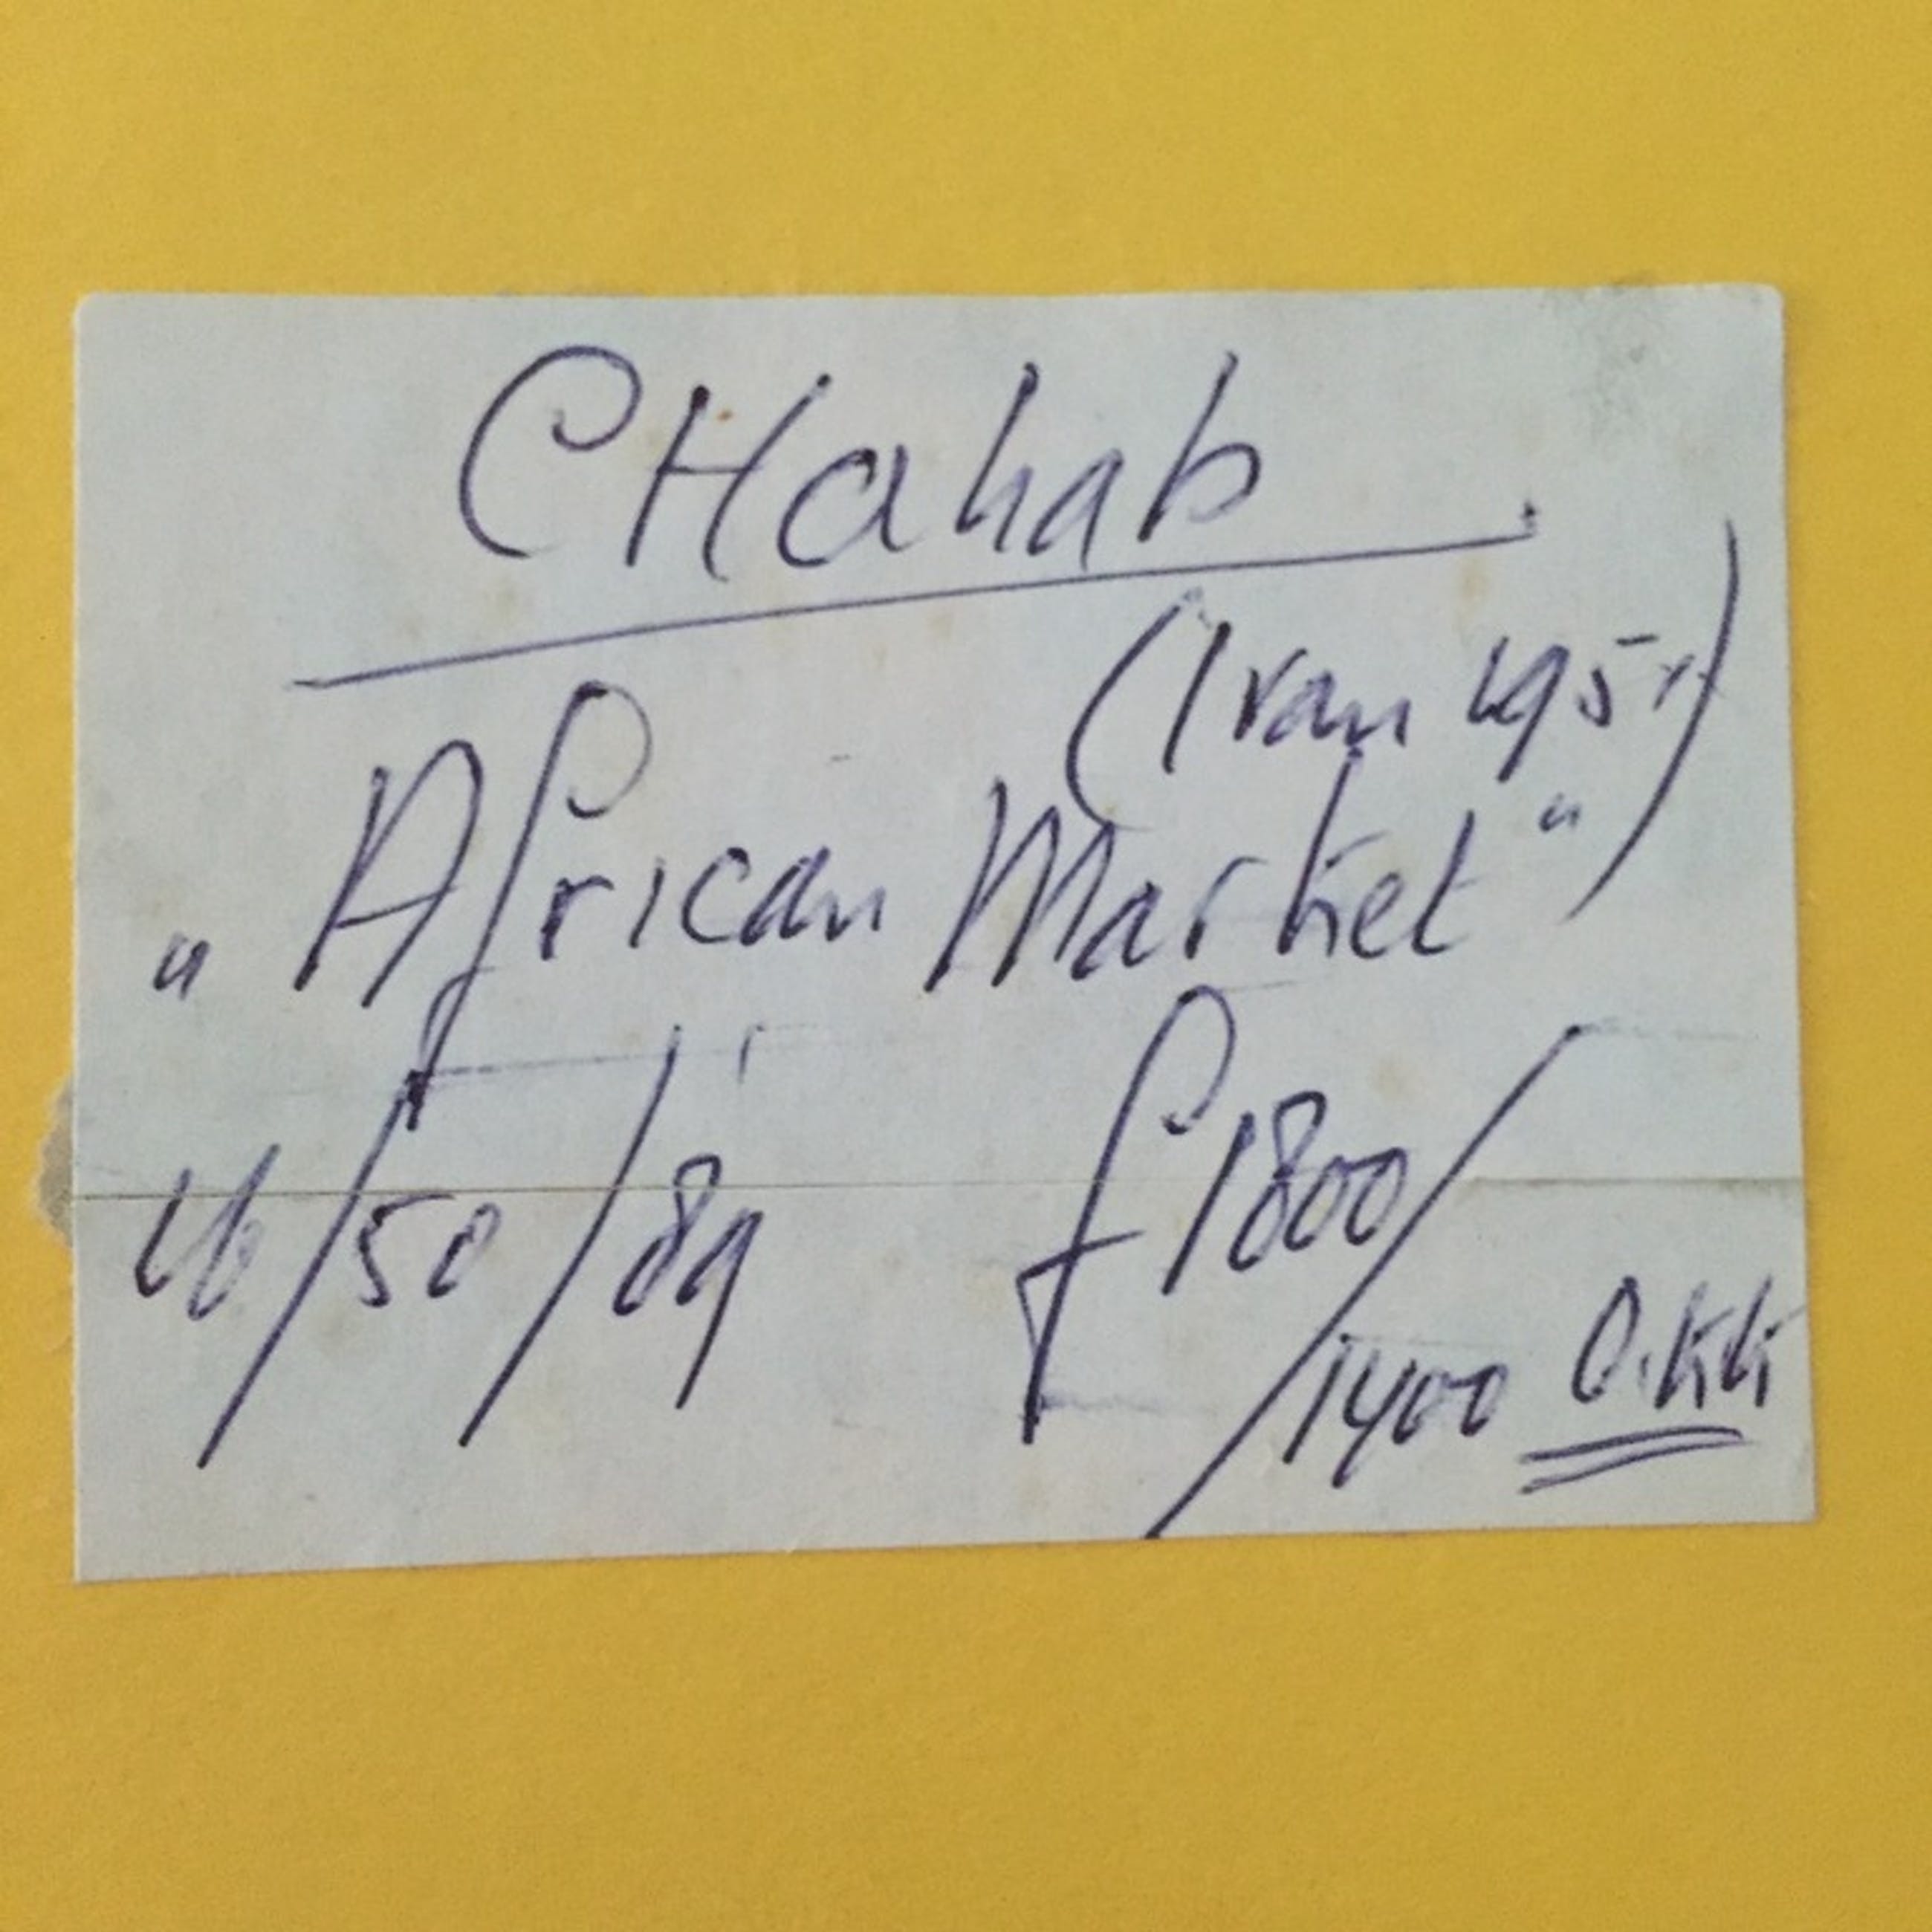 CHahab
(Iran 1951)
„African Market"
16/50/89 f 1800/
1400 O.KK